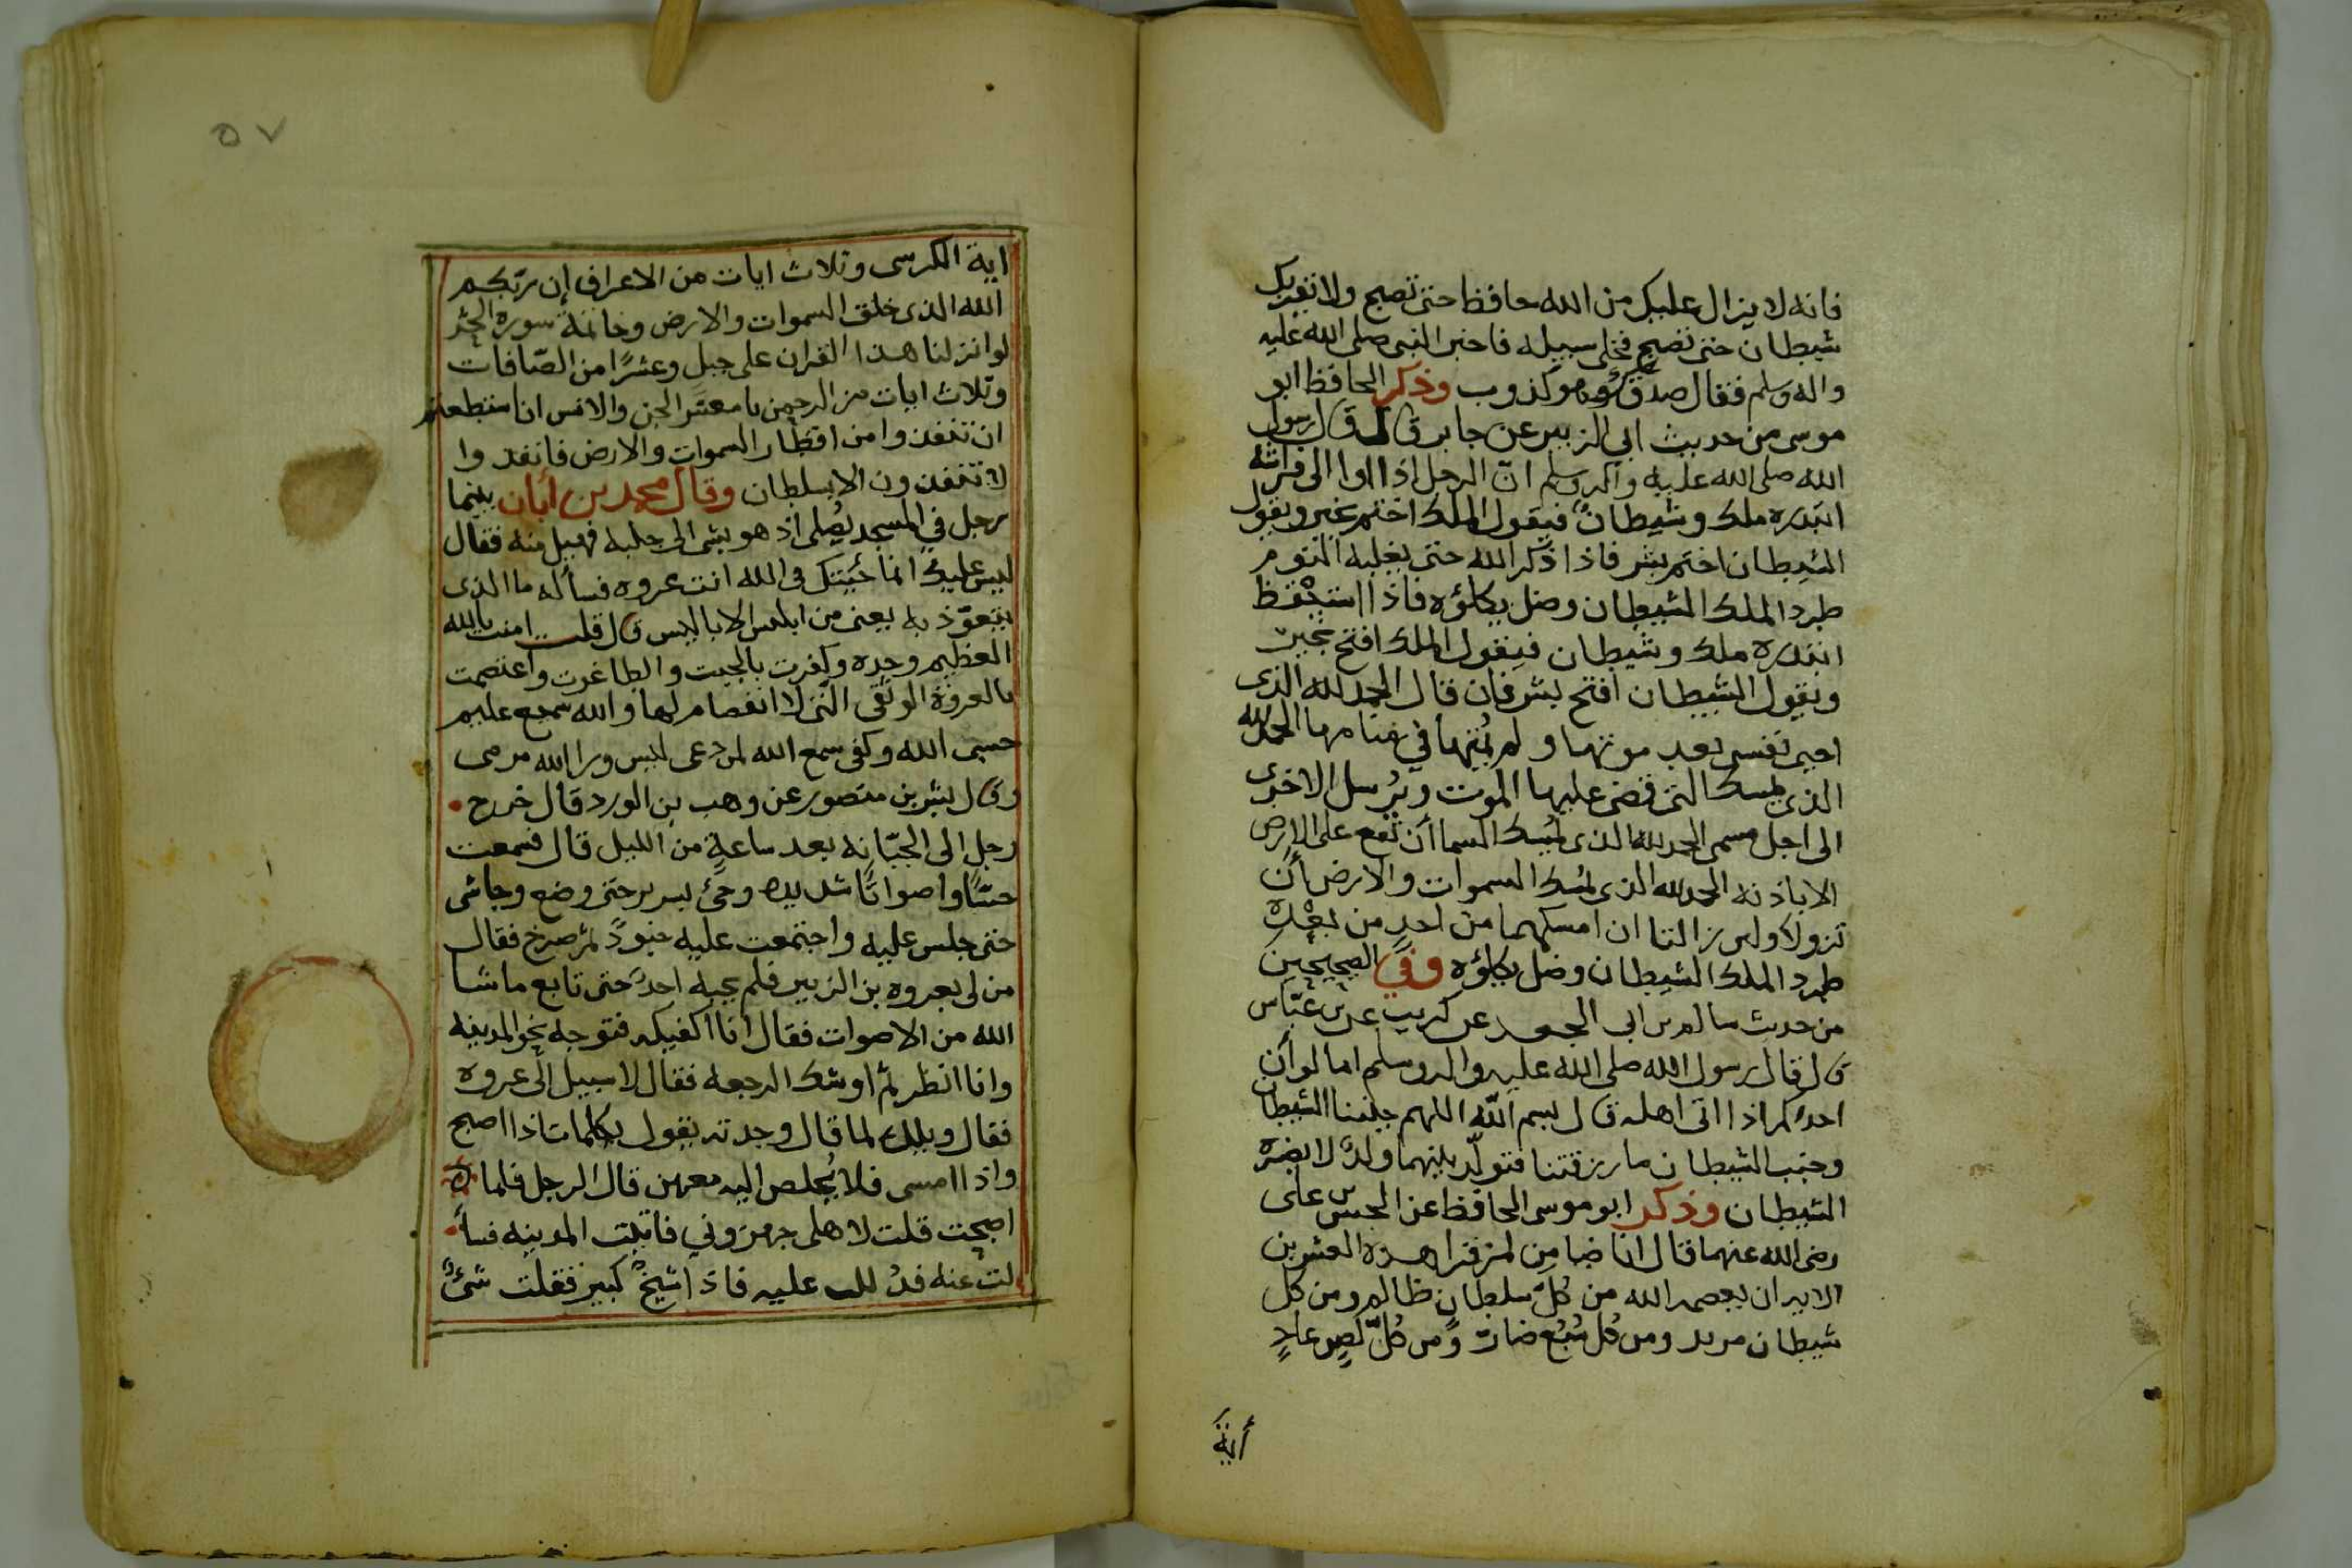 فانه لا يزال عليك من الله حافظا حتى تصبح ولا تقربك
شيطان حتى تصبح فخلى سبيله فاخبر النبى صلى الله عليه
واله وسلم فقال صدقك وهو كذوب وذكر الحافظ ابو
موسى من حديث ابي الزبير عن جابر قال قال رسول
الله صلى الله عليه واله وسلم ان الرجل اذا اوا الى فراشه
ابتدره ملك وشيطان فيقول الملك اختم بخير ويقول
الشيطان اختم بشر فاذا ذكر الله حتى يغلبه النوم
طرد الملك الشيطان وضل يكلؤه فاذا استيقظ
ابتدره ملك وشيطان فيقول الملك افتح بخير
ويقول الشيطان افتح بشر فان قال الحمد لله الذى
احيى نفسى بعد موتها ولم يمتها في منامها الحمد لله
الذى يمسك التى قضى عليها الموت ويرسل الاخرى
الى اجل مسمى الحمد لله الذى يمسك السما أن تقع على الارض
الا باذنه الحمد لله الذى يمسك السموات والارض أن
تزولا ولين زالتا ان امسكهما من احد من بعده
طرد الملك الشيطان وضل يكلؤه وفي الصحيحين
من حديث سالم بن ابى الجعد عن كريب عن بن عبّاس
قال قال رسول الله صلى الله عليه واله وسلم اما لو أن
احدكم اذا اتى اهله قال بسم الله اللهم جنبنا الشيطان
وجنب الشيطان ما رزقتنا فتولّد بينهما ولدٌ لا يضره
الشيطان وذكر ابو موسى الحافظ عن الحسن بن على
رضى الله عنهما قال انا ضامن لمن قرا هذه العشرين
الاية ان يعصمه الله من كلّ سلطان ظالم ومن كل
شيطان مريد ومن كل سَبُع ضارٍ ومن كلّ لصٍ عادٍ
أية
٥٧
اية الكرسى وثلاث ايات من الاعراف إن ربّكم
الله الذى خلق السموات والارض وخاتمة سورة الحشر
لو انزلنا هذا القران على جبل وعشرًا من الصّافات
وثلاث ايات من الرحمن يا معشر الجن والانس ان استطعتم
ان تنفذوا من اقطار السموات والارض فانفذوا
لا تنفذون الا بسلطان وقال محمد بن أبان بينما
رجل في المسجد يُصلى اذ هو بشى الى جنبه فهيل منه فقال
ليس عليك انما جيتك فى الله انت عروه فسأله ما الذى
يتعوّذ به يعنى من ابليس الابالليس قال قلت امنت بالله
العظيم وحده وكفرت بالجبت والطاغوت واعتصمت
بالعروة الوثقى التى لا انفصام لها والله سميع عليم
حسبى الله وكفى سمع الله لمن دعى ليس ورا الله مرمى
وقال بشر بن منصور عن وهب بن الورد قال خرج
رجل الى الجبّانه بعد ساعةٍ من الليل قال فسمعت
حسًّا واصواتًا شديده وجئ بسرير حتى وضع وجا شى
حتى جلس عليه واجتمعت عليه جنودٌ ثم صرخ فقال
من لى بعروه بن الزبير فلم يجبه احد حتى تابع ما شا
الله من الاصوات فقال انا اكفيكه فتوجه نحو المدينه
وانا انظر ثم اوشك الرجعه فقال لا سبيل الى عروه
فقال ويلك لما قال وجدته يقول بكلمات اذا اصبح
واذا امسى فلا يُخلص اليه معهن قال الرجل فلما
اصبحت قلت لاهلى جهزوني فاتيت المدينه فسأ
لت عنه فدُللت عليه فاذا شيخٌ كبير فقلت شئٌ